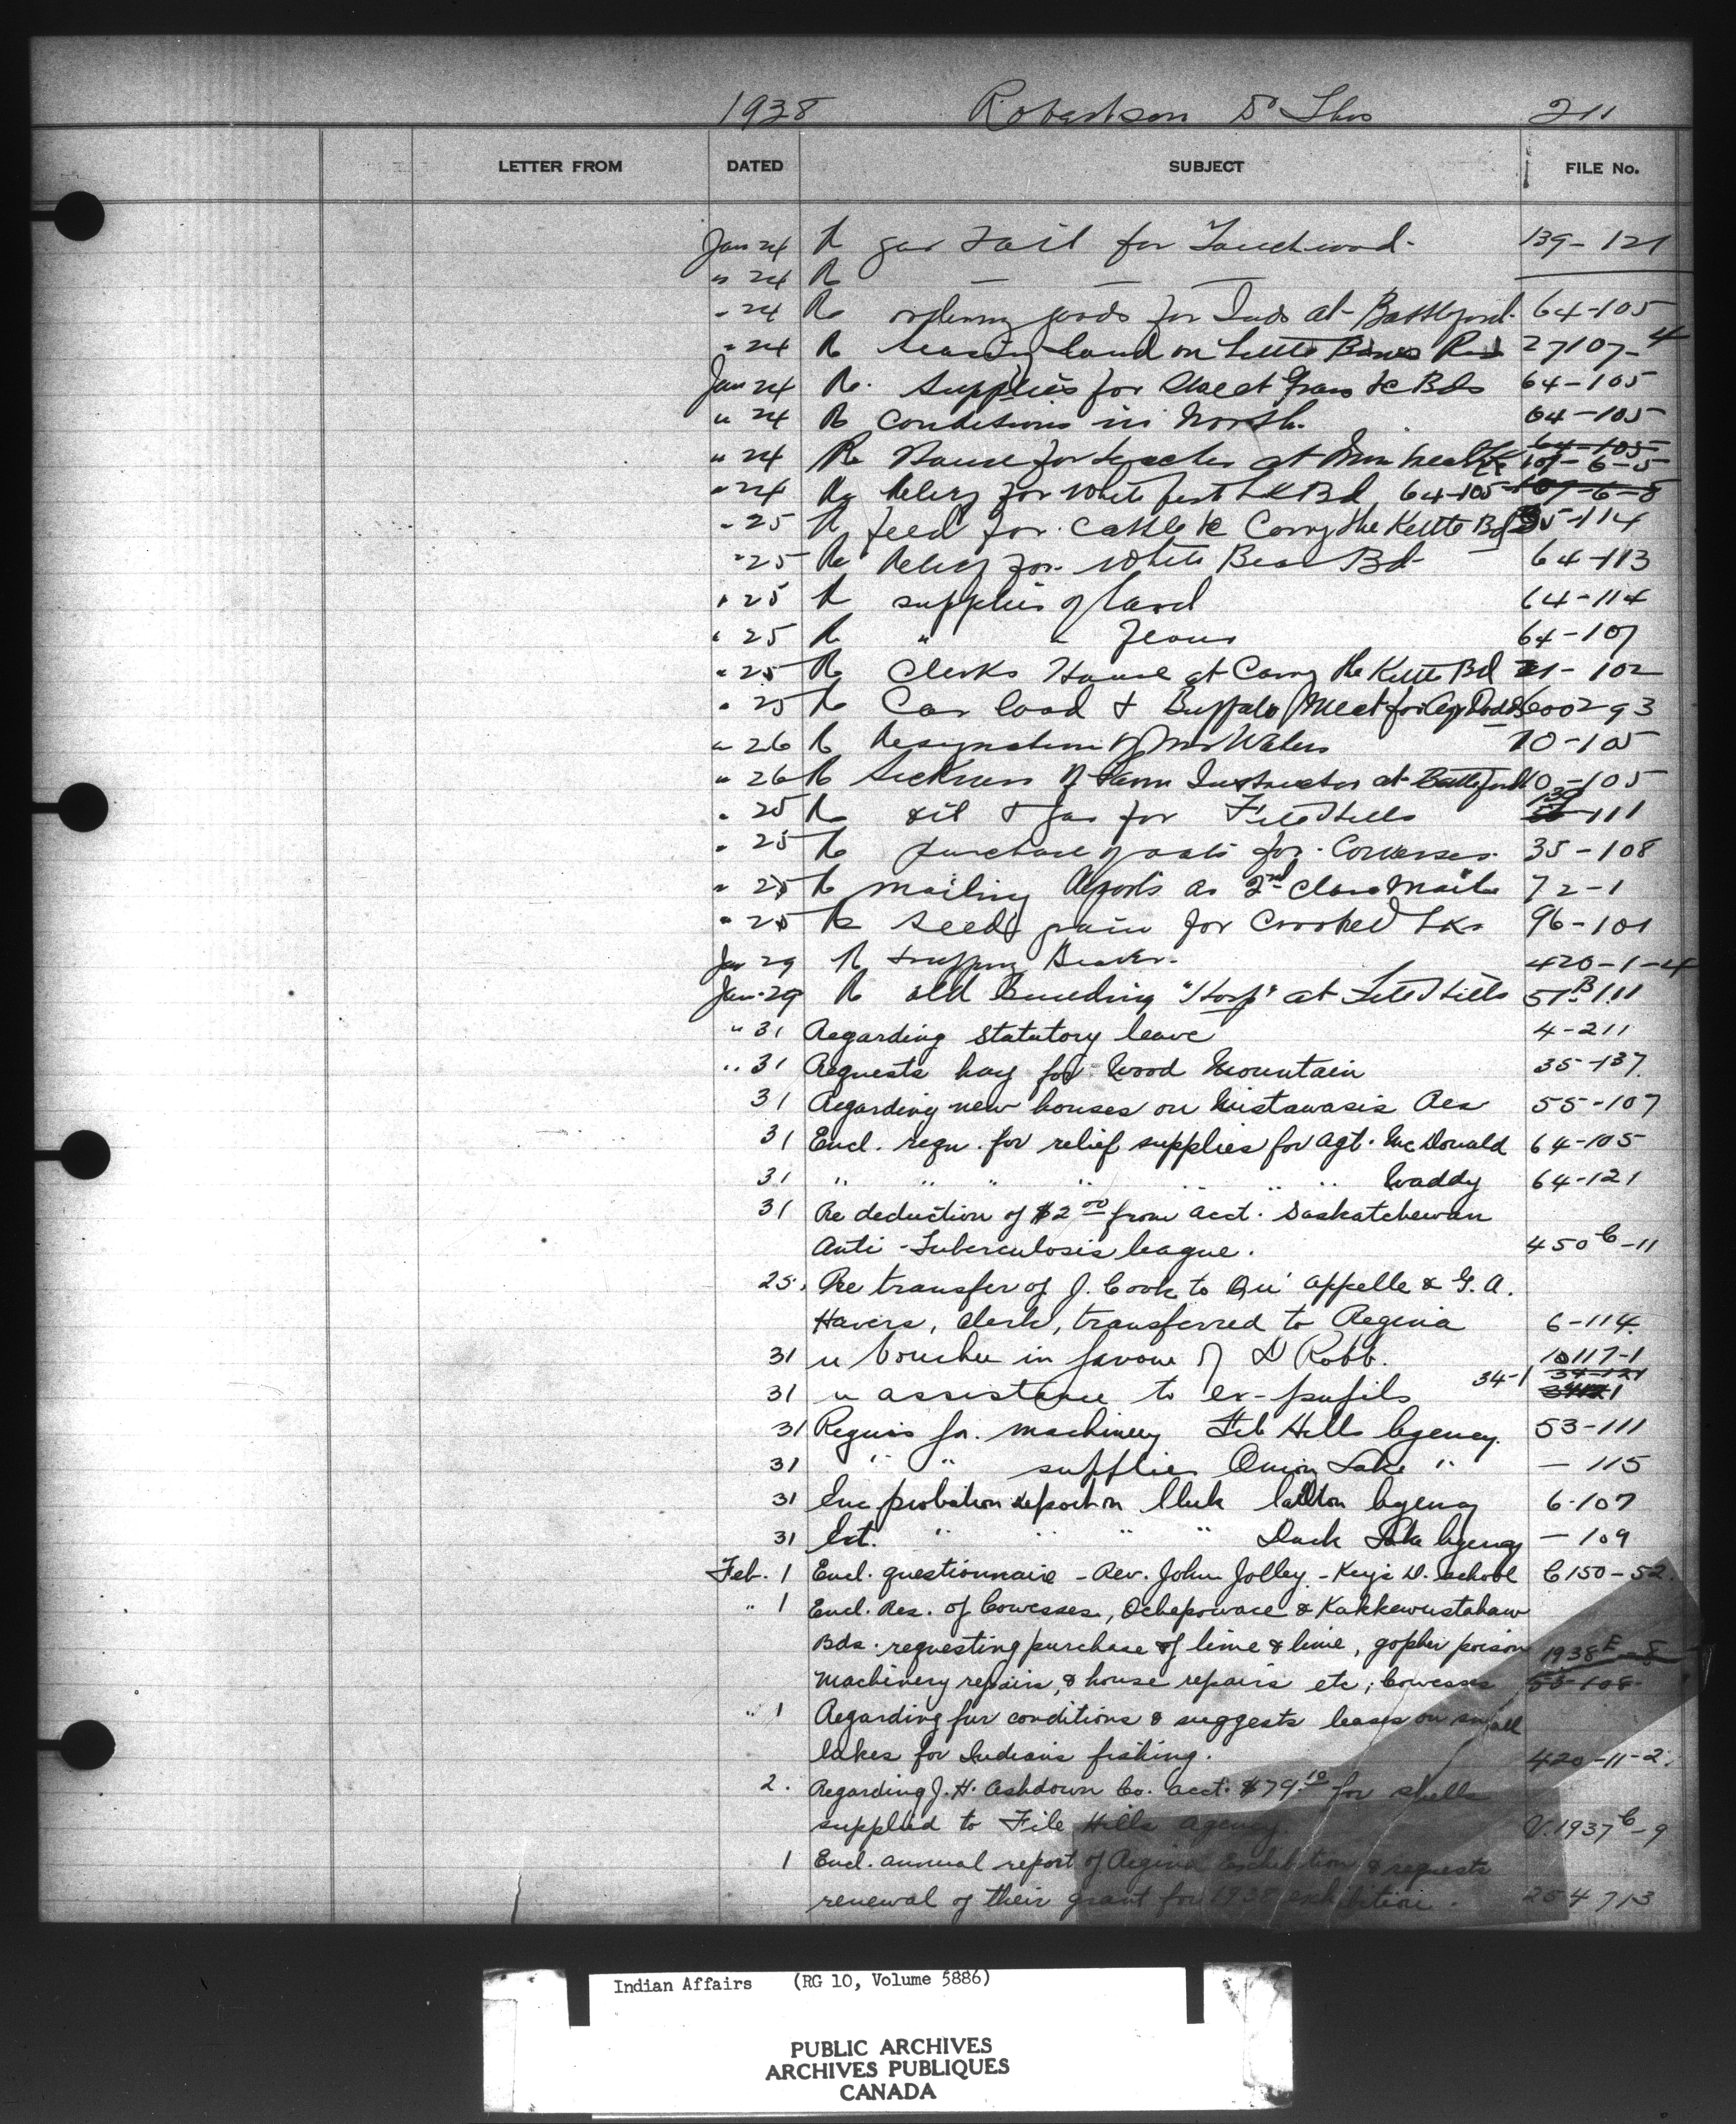 1938 Robertson 211
LETTER FROM DATED SUBJECT FILE No.
Jan 24 Re gas for Touchwood 139-121
" 24 Re — — —
" 24 Re ordering goods for Inds at Battleford 64-105
" 24 Re land on Little Res 27107-4
Jan 24 Re. Supplies for Sweet Grass &c Bds 64-105
" 24 Re Conditions in North. 64-105
" 24 Re House for teacher at 64-105
107-6-5
" 24 Re Relief for White Bd 64-105 107-6-5
" 25 Re feed for cattle &c Carry the Kettle Bd 35-114
" 25 Re Relief for White Bear Bd 64-113
" 25 Re supplies of 64-114
" 25 Re " " 64-107
" 25 Re Clerks House at Carry the Kettle Bd 21-102
" 25 Re Car load of Buffalo Meat for 600293
" 26 Re Resignation of Mr Waters 10-105
" 26 Re Sickness of Farm Instructor at Battleford 10-105
" 25 Re oil & gas for File Hills 139-111
" 25 Re purchase of oats for Cowesses 35-108
" 25 Re mailing Reports as 2nd Class Mail 72-1
" 25 Re Seed grain for Crooked Lks 96-101
Jan 29 Re trapping Beaver. 420-1-4
Jan. 29 Re old building "Hosp" at File Hills 51B-111
" 31 Regarding statutory leave 4-211
" 31 Requests hay for Wood Mountain 35-137
31 Regarding new houses on Mistawasis Res 55-107
31 Encl. reqn. for relief supplies for Agt. McDonald 64-105
31 " " " " " " " Waddy 64-121
31 Re deduction of $2 00 from acct. Saskatchewan
Anti-Tuberculosis league. 450C-11
25. Re transfer of J. Cook to Qu'Appelle & G. A.
Havers, clerk, transferred to Regina 6-114
31 " Voucher in favour of D Robb. 10117-1
34-121
31 " assistance to ex-pupils 34-1
31 Requis for. machinery File Hills Agency. 53-111
31 " " supplies Onion Lake " — 115
31 Enc probation report on Clerk Carlton Agency 6-107
31 Ext. " " " " Duck Lake Agency — 109
Feb. 1 Encl. questionnaire - Rev. John Jolley - Key's D. School C150-52.
" 1 Encl. Res. of Cowesses, Ochapowace & Kakkewistahaw
Bds. requesting purchase of lime & lime, gopher poison 1938E-8
Machinery repairs, & house repairs etc, Cowesses 53-108
" 1 Regarding fur conditions & suggests leases on small
lakes for Indians fishing. 420-11-2.
2. Regarding J. H. Ashdown Co. acct. $79.10 for shells
supplied to File Hills Agency. V.1937C-9
1 Encl. annual report of Regina Exhibition & requests
renewal of their grant for 1938 exhibition. 254713
Indian Affairs (RG 10, Volume 5886)
PUBLIC ARCHIVES
ARCHIVES PUBLIQUES
CANADA